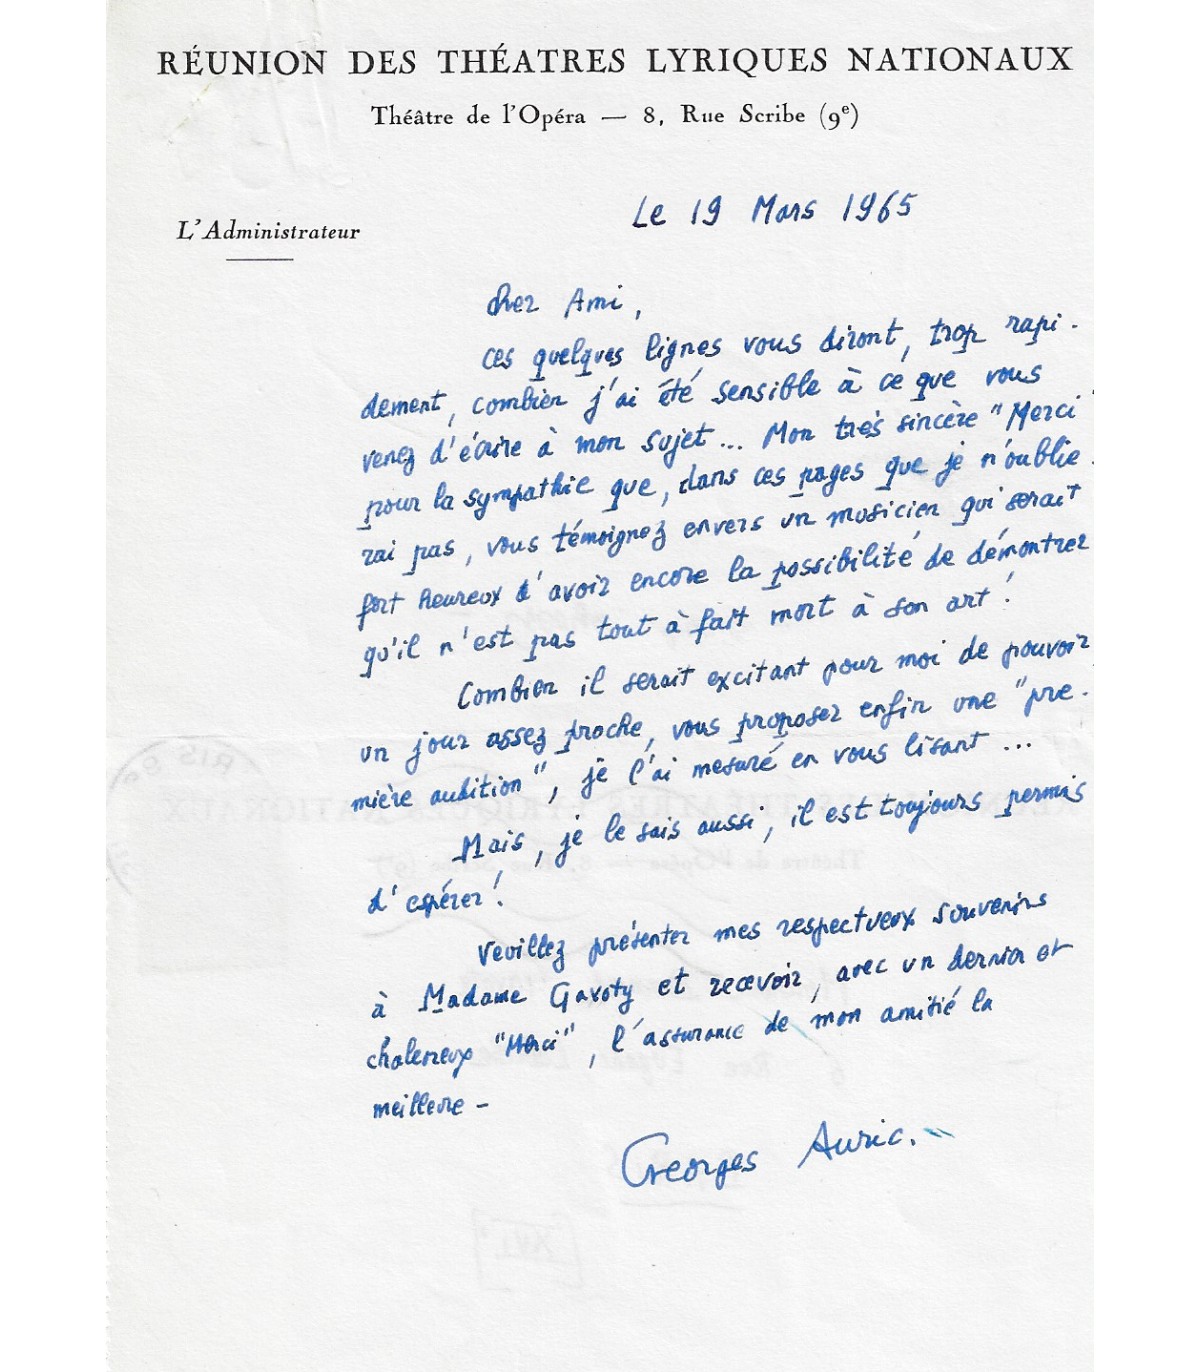 RÉUNION DES THÉATRES LYRIQUES NATIONAUX
Théâtre de l'Opéra — 8, Rue Scribe (9e)
Le 19 Mars 1965
L'Administrateur
Cher Ami,
ces quelques lignes vous diront, trop rapi-
dement, combien j'ai été sensible à ce que vous
venez d'écrire à mon sujet... Mon très sincère "Merci
pour la sympathie que, dans ces pages que je n'oublie-
rai pas, vous témoignez envers un musicien qui serait
fort heureux d'avoir encore la possibilité de démontrer
qu'il n'est pas tout à fait mort à son art !
Combien il serait excitant pour moi de pouvoir
un jour assez proche, vous proposer enfin une "pre-
mière audition", je l'ai mesuré en vous lisant...
Mais, je le sais aussi, il est toujours permis
d'espérer !
Veuillez présenter mes respectueux souvenirs
à Madame Gavoty et recevoir, avec un dernier et
chaleureux "Merci", l'assurance de mon amitié la
meilleure -
Georges Auric.